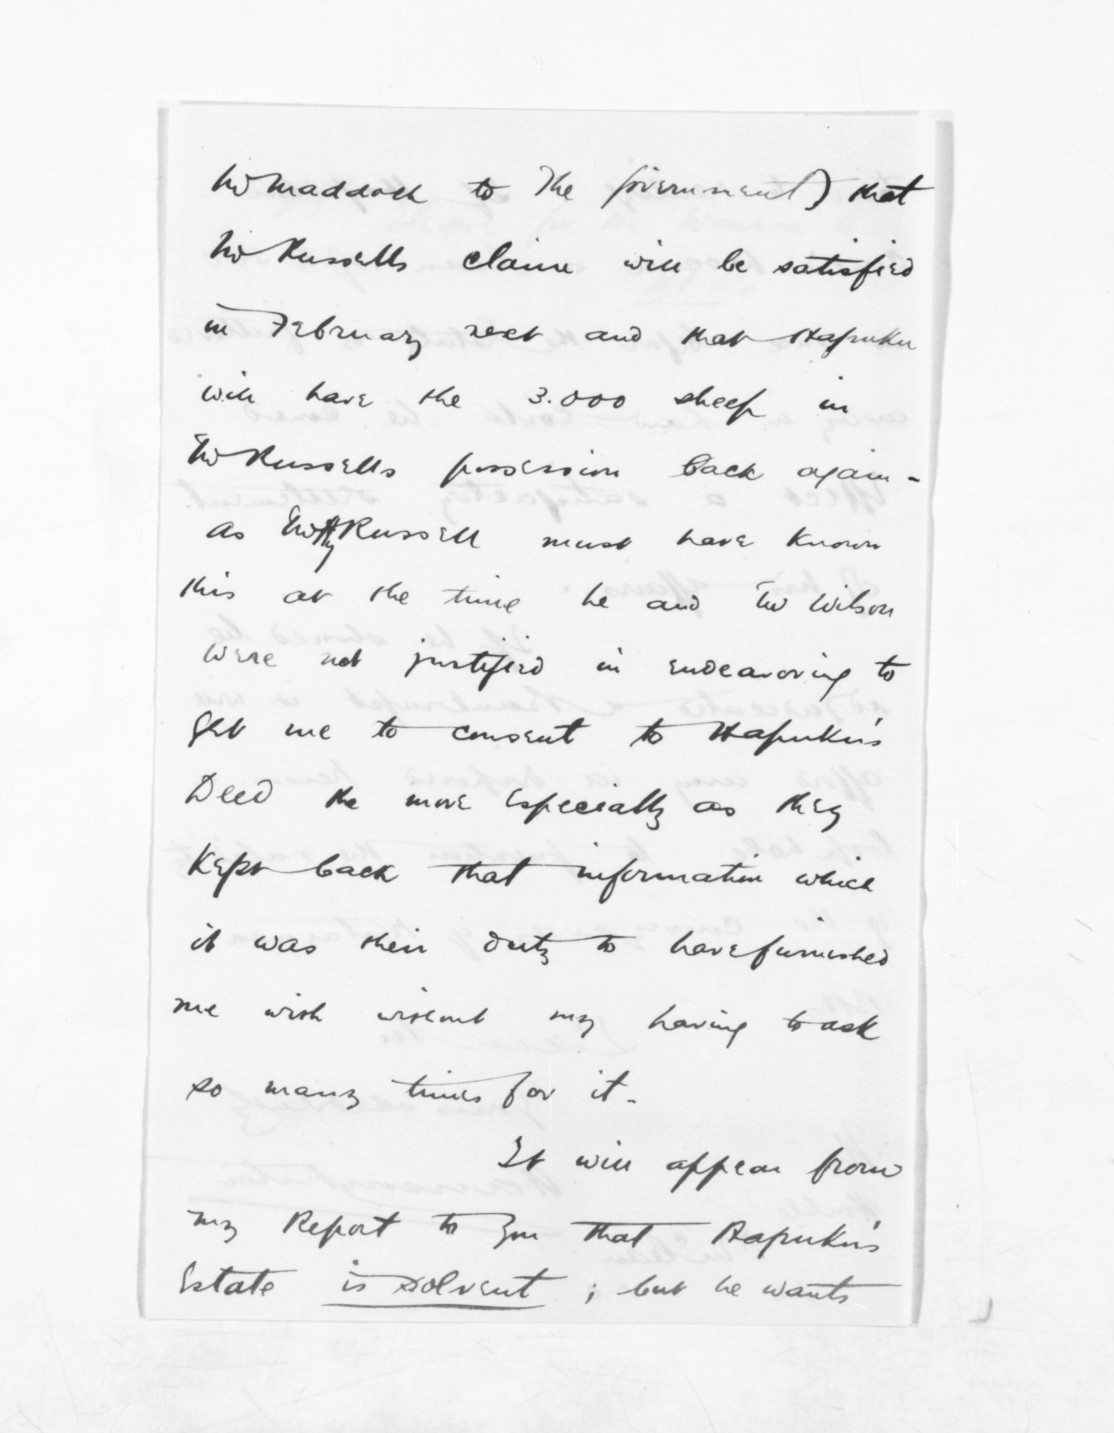 Mr Maddock to the Government) that
Mr Russells claim will be satisfied
in February next and that Hapuku
will have the 3.000 sheep in
Mr Russells possession back again -
as Mr Hy Russell must have known
this at the time he and Mr Wilson
were not justified in endeavoring to
get me to consent to Hapuku's
Deed the more especially as they
kept back that information which
it was their duty to have furnished
me with without my having to ask
so many times for it -
It will appear from
my Report to you that Hapuku's
Estate is solvent ; but he wants